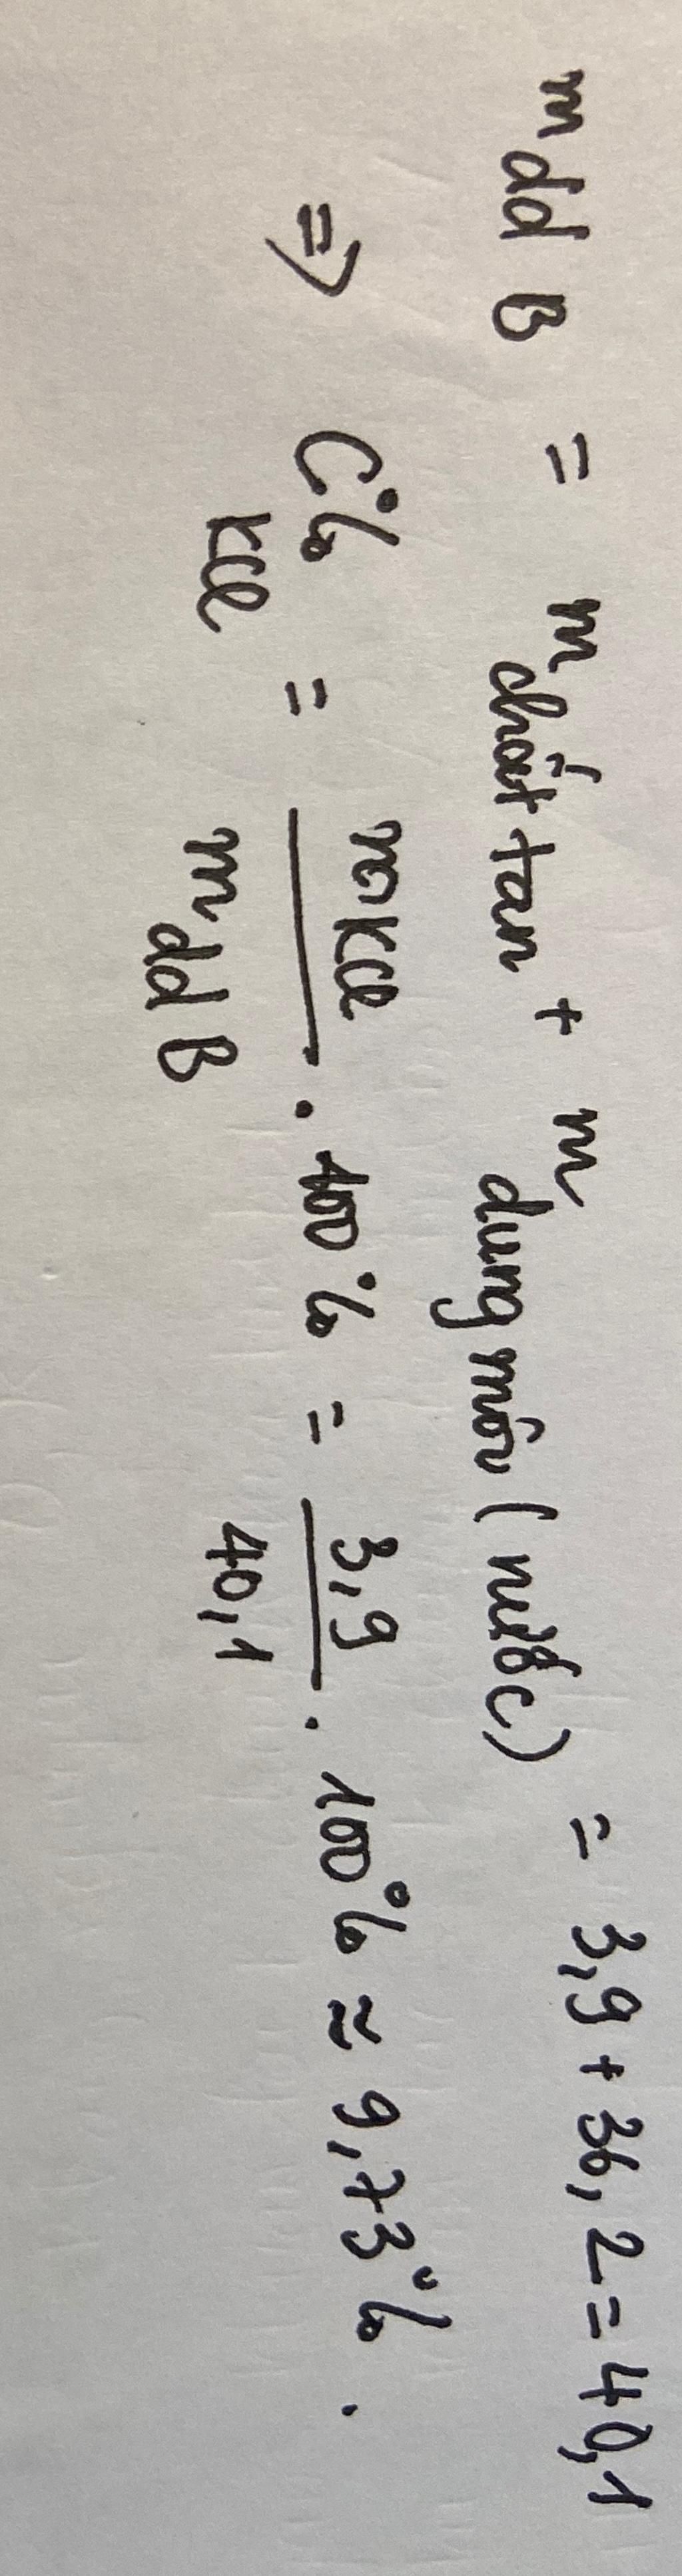 m dd B = m chất tan + m dung môi (nước) = 3,9 + 36,2 = 40,1
=> C% KCl = mKCl / m dd B . 100% = 3,9 / 40,1 . 100% ≈ 9,73%.